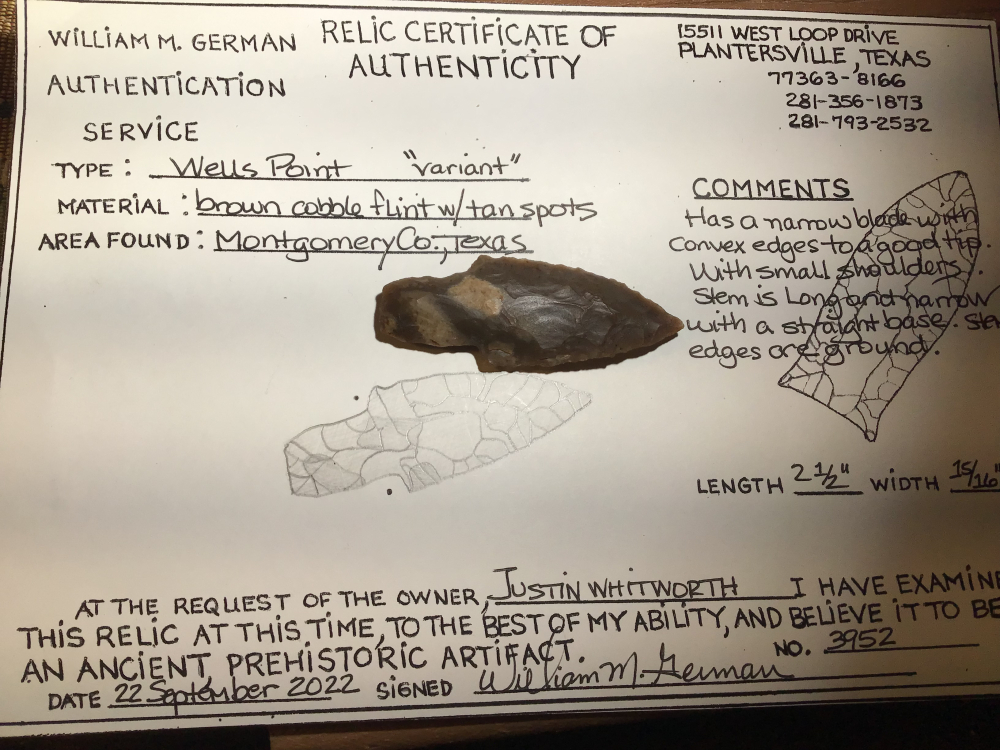 WILLIAM M. GERMAN
AUTHENTICATION
SERVICE
RELIC CERTIFICATE OF
AUTHENTICITY
15511 WEST LOOP DRIVE
PLANTERSVILLE, TEXAS
77363-8166
281-356-1873
281-793-2532
TYPE: Wells Point "variant"
MATERIAL: brown cobble flint w/ tan spots
AREA FOUND: Montgomery Co., Texas
COMMENTS
Has a narrow blade with
convex edges to a good tip.
With small shoulders.
Stem is Long and narrow
with a straight base. Ste
edges are ground.
LENGTH 2 1/2" WIDTH 15/16"
AT THE REQUEST OF THE OWNER, JUSTIN WHITWORTH I HAVE EXAMINE
THIS RELIC AT THIS TIME, TO THE BEST OF MY ABILITY, AND BELIEVE IT TO BE
AN ANCIENT, PREHISTORIC ARTIFACT. NO. 3952
DATE 22 September 2022 SIGNED William M. German